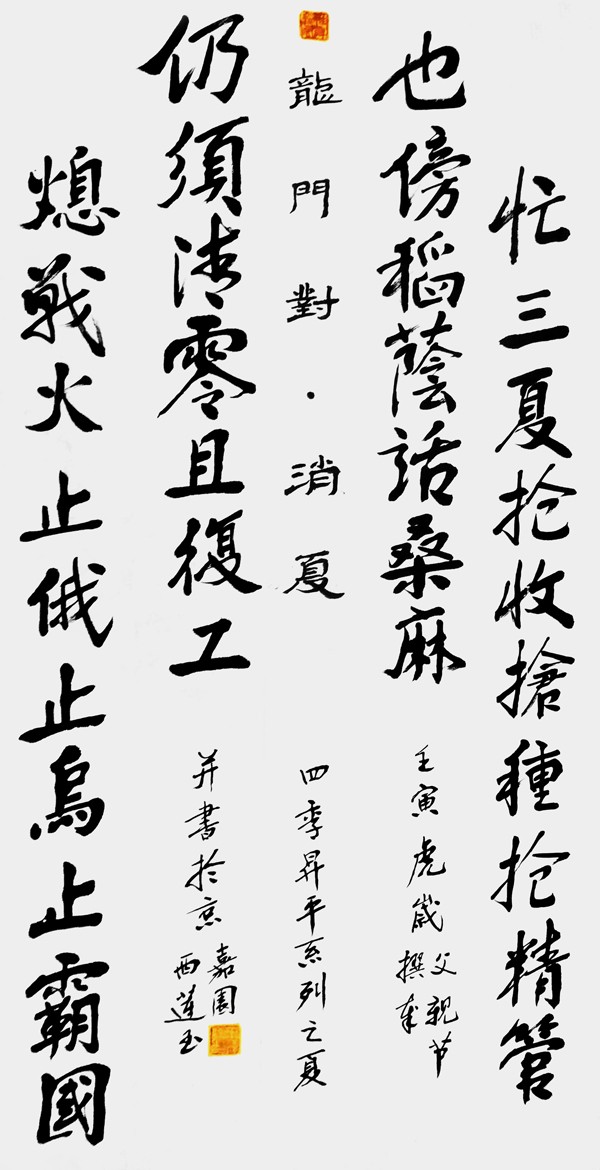 忙三夏抢收搶種抢精管
也傍稻蔭話桑麻
熄戰火止俄止烏止霸國
仍須清零且復工
龍門對·消夏
壬寅虎歲父親节撰
四季昇平系列之夏
并書於京西蓮玉嘉園